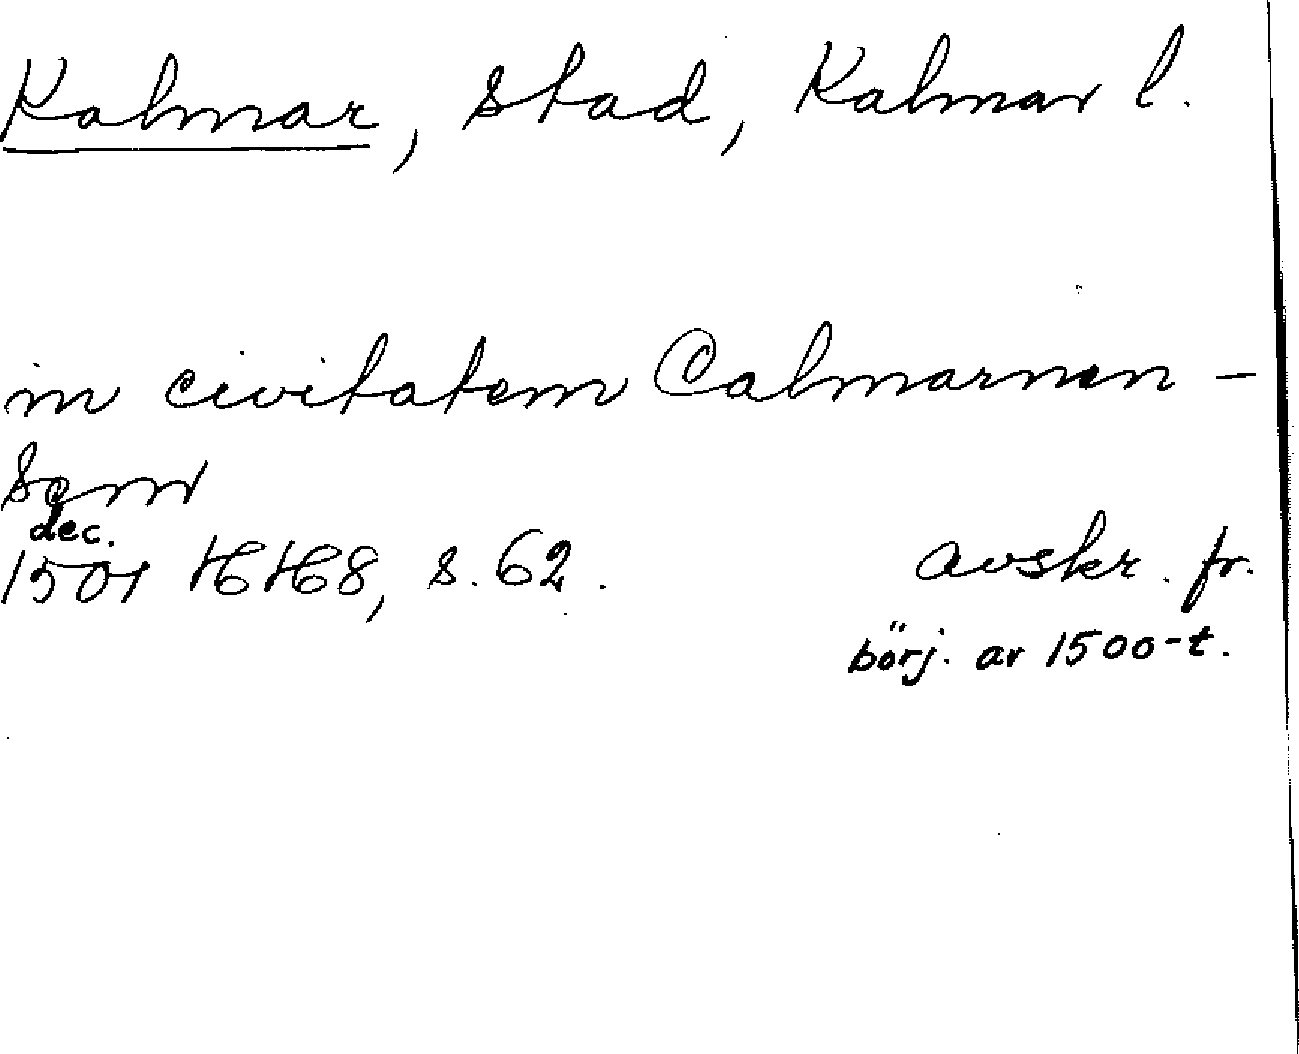 Kalmar, stad, Kalmar l.
in civitatem Calmarnen-
sem
dec.
1501 HH8, s. 62. avskr. fr.
börj. av 1500-t.